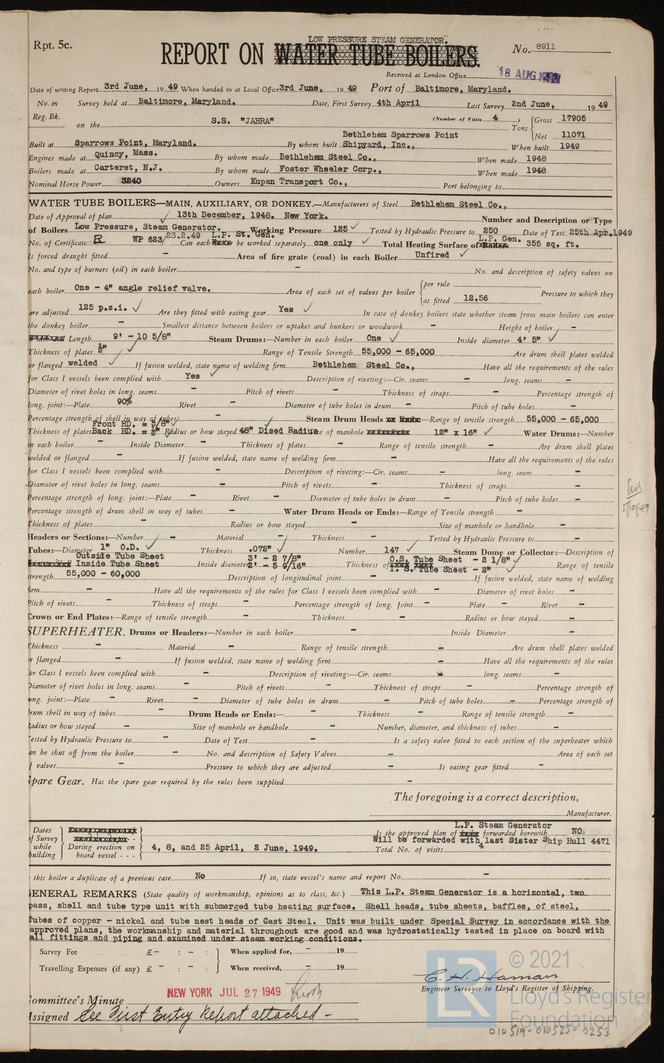 Rpt. 5c.
LOW PRESSURE STEAM GENERATOR.
REPORT ON WATER TUBE BOILERS.
No. 8911
Received at London Office
18 AUG 1949
Date of writing Report 3rd June, 1949 When handed in at Local Office 3rd June, 1949 Port of Baltimore, Maryland.
No. in Survey held at Baltimore, Maryland. Date, First Survey 4th April Last Survey 2nd June, 1949
Reg. Bk. (Number of Visits 4 ) Gross 17905
on the S.S. "JAHRA" Tons Net 11071
Built at Sparrows Point, Maryland. By whom built Bethlehem Sparrows Point Shipyard, Inc., When built 1949
Engines made at Quincy, Mass. By whom made Bethlehem Steel Co., When made 1948
Boilers made at Carteret, N.J. By whom made Foster Wheeler Corp., When made 1948
Nominal Horse Power 3240 Owners Kupan Transport Co., Port belonging to
WATER TUBE BOILERS—MAIN, AUXILIARY, OR DONKEY.—Manufacturers of Steel Bethlehem Steel Co.,
Date of Approval of plan 13th December, 1948. New York. Number and Description or Type
of Boilers Low Pressure, Steam Generator. Working Pressure 125 Tested by Hydraulic Pressure to 250 Date of Test 25th Apr. 1949
No. of Certificate R WP 623/23.2.49 Can each L.P. St. Gen. be worked separately one only Total Heating Surface of L.P. Gen. 355 sq. ft.
Is forced draught fitted - Area of fire grate (coal) in each Boiler Unfired
No. and type of burners (oil) in each boiler - No. and description of safety valves on
each boiler One - 4" angle relief valve. Area of each set of valves per boiler per rule - as fitted 12.56 Pressure to which they
are adjusted 125 p.s.i. Are they fitted with easing gear Yes In case of donkey boilers state whether steam from main boilers can enter
the donkey boiler - Smallest distance between boilers or uptakes and bunkers or woodwork - Height of boiler -
Length 9' - 10 5/8" Steam Drums:—Number in each boiler One Inside diameter 4' 5"
Thickness of plates Range of Tensile Strength 55,000 - 65,000 Are drum shell plates welded
or flanged welded If fusion welded, state name of welding firm Bethlehem Steel Co., Have all the requirements of the rules
for Class I vessels been complied with Yes Description of riveting:—Cir. seams - long. seams -
Diameter of rivet holes in long. seams - Pitch of rivets - Thickness of straps - Percentage strength of
long. joint:—Plate 90% Rivet - Diameter of tube holes in drum - Pitch of tube holes -
Percentage strength of shell in way of tubes Steam Drum Heads Range of Tensile strength 55,000 - 65,000
Thickness of plates Front HD. = Back HD. = Radius or how stayed 48" Disced Radius of manhole 12" x 16" Water Drums:—Number
in each boiler - Inside Diameter - Thickness of plates - Range of tensile strength - Are drum shell plates
welded or flanged - If fusion welded, state name of welding firm - Have all the requirements of the rules
for Class I vessels been complied with - Description of riveting:—Cir. seams - long. seam -
Diameter of rivet holes in long. seams - Pitch of rivets - Thickness of straps - Percentage strength of
Percentage strength of long. joint:—Plate - Rivet - Diameter of tube holes in drum - Pitch of tube holes -
Percentage strength of drum shell in way of tubes - Water Drum Heads or Ends:—Range of Tensile strength -
Thickness of plates - Radius or how stayed - Size of manhole or handhole -
Headers or Sections:—Number - Material - Thickness - Tested by Hydraulic Pressure to -
Tubes:—Diameter 1" O.D. Thickness .072" Number 147 Steam Dome or Collector:—Description of
Outside Tube Sheet 3' - 2 7/8" O.S. Tube Sheet - 2 1/8"
Inside Tube Sheet Inside diameter 2' - 5 9/16" Thickness of I. S. Tube Sheet - 2" Range of tensile
strength 55,000 - 60,000 Description of longitudinal joint - If fusion welded, state name of welding
firm - Have all the requirements of the rules for Class I vessels been complied with - Diameter of rivet holes -
Pitch of rivets - Thickness of straps - Percentage strength of long. joint - Plate - Rivet -
Crown or End Plates:—Range of tensile strength - Thickness - Radius or how stayed -
SUPERHEATER. Drums or Headers:—Number in each boiler - Inside Diameter -
Thickness - Material - Range of tensile strength - Are drum shell plates welded
or flanged - If fusion welded, state name of welding firm - Have all the requirements of the rules
for Class I vessels been complied with - Description of riveting:—Cir. seams - long. seams -
Diameter of rivet holes in long. seams - Pitch of rivets - Thickness of straps - Percentage strength of
long. joint:—Plate - Rivet - Diameter of tube holes in drum - Pitch of tube holes - Percentage strength of
drum shell in way of tubes - Drum Heads or Ends:— Thickness - Range of tensile strength -
Radius or how stayed - Size of manhole or handhole - Number, diameter, and thickness of tubes -
Tested by Hydraulic Pressure to - Date of Test - Is a safety valve fitted to each section of the superheater which
can be shut off from the boiler - No. and description of Safety Valves - Area of each set
of valves - Pressure to which they are adjusted - Is easing gear fitted -
Spare Gear. Has the spare gear required by the rules been supplied -
The foregoing is a correct description,
Manufacturer.
Dates of Survey while building During erection on board vessel - - - 4, 8, and 25 April, 2 June, 1949.
L.P. Steam Generator
Is the approved plan of forwarded herewith NO.
Will be forwarded with last Sister Ship Hull 4471
Total No. of visits 4
Is this boiler a duplicate of a previous case No If so, state vessel's name and report No. -
GENERAL REMARKS (State quality of workmanship, opinions as to class, &c.) This L.P. Steam Generator is a horizontal, two
pass, shell and tube type unit with submerged tube heating surface. Shell heads, tube sheets, baffles, of steel,
Tubes of copper - nickel and tube nest heads of Cast Steel. Unit was built under Special Survey in accordance with the
approved plans, the workmanship and material throughout are good and was hydrostatically tested in place on board with
all fittings and piping and examined under steam working conditions.
Survey Fee £ - : - : When applied for, - 19
Travelling Expenses (if any) £ - : - : When received, 19
C. H. Haman
Engineer Surveyor to Lloyd's Register of Shipping.
Committee's Minute NEW YORK JUL 27 1949
Assigned See First Entry Report attached -
© 2021
LR
Lloyd's Register
Foundation
010519-010525-0253